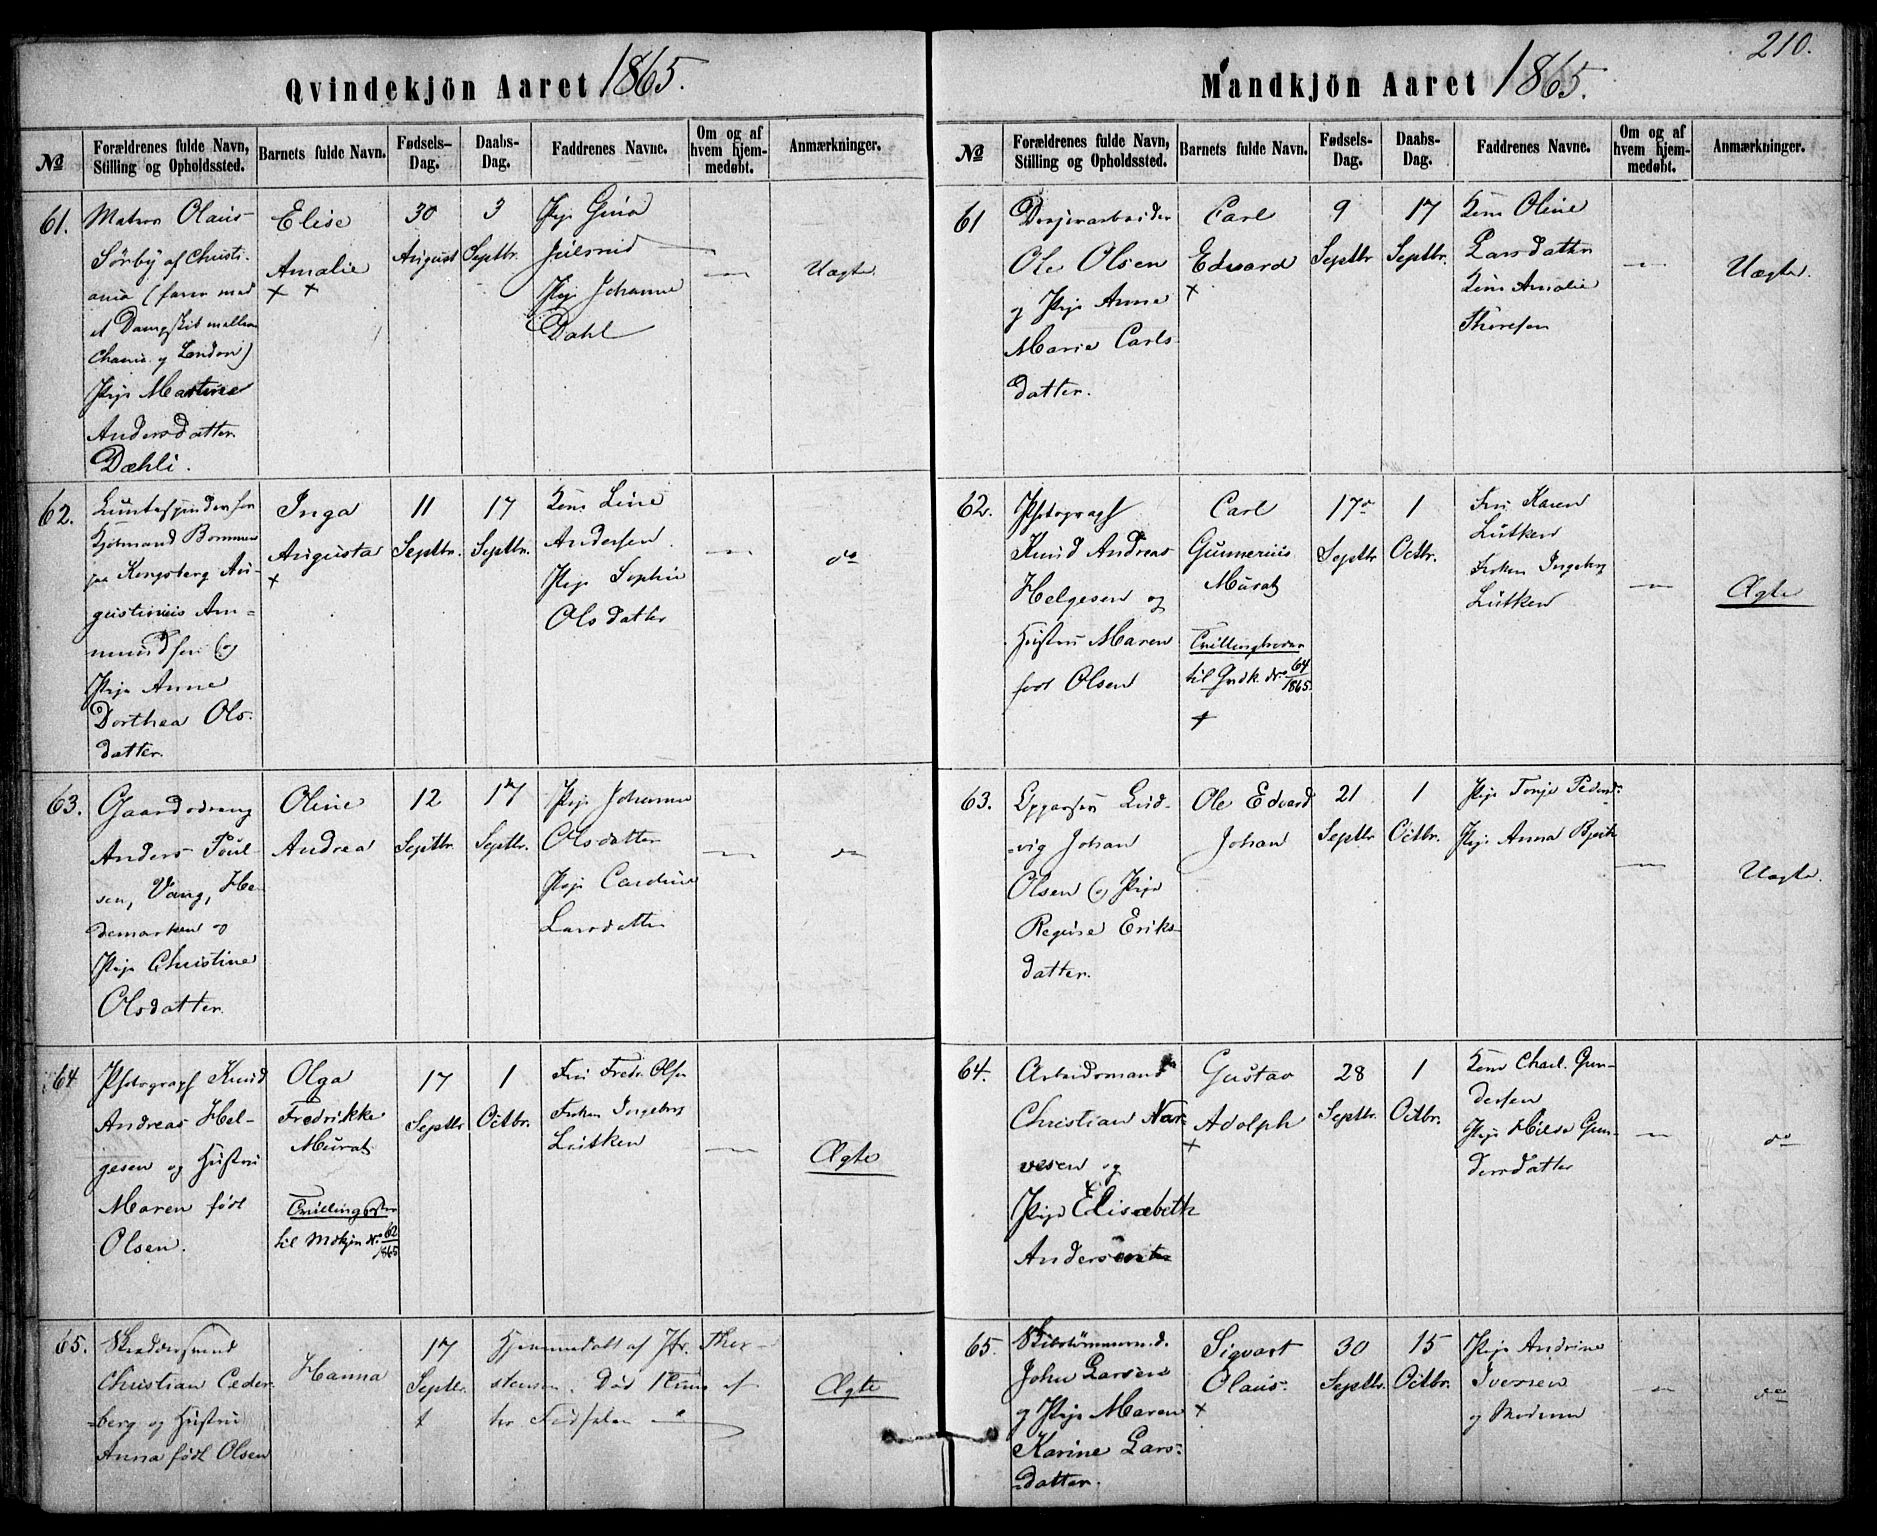 Qvindekjön Aaret 1865.
No
Forældrenes fulde Navn,
Stilling og Opholdssted.
Barnets fulde Navn.
Fødsels-
Dag.
Daabs-
Dag.
Faddrenes Navne.
Om og af
hvem hjem-
medøbt.
Anmærkninger.
61.
Matros Olaus
Sörby af Christi-
ania (farer med
et Dampskib mellem
Chania og London)
Pige Martine
Andersdatter
Dæhli.
Elise
Amalie
+ +
30
August
3
Septbr.
Pige Gina
Juelsrud
Pige Johanne
Dahl
—
Uægte
62.
Kjöbmand Bommen
paa Kongsberg Au-
gustinius Am-
mundsen og
Pige Anne
Dorthea Ols-
datter.
Inga
Augusta
+
11
Septbr.
17
Septbr.
Kone Line
Andersen.
Pige Sophie
Olsdatter
—
do
63.
Gaardsdreng
Anders Poul-
sen, Vang, He-
demarken og
Pige Christine
Olsdatter.
Oline
Andrea
12
Septbr.
17
Septbr.
Pige Johanne
Olsdatter
Pige Caroline
Larsdatter
—
do
64
Photograph Knud
Andreas Hel-
gesen og Hustru
Maren født
Olsen.
Olga
Fredrikke
Murat
Tvillingsøster
til Mdkjøn No 62
1865
17
Septbr
1
Octbr.
Fru Fredr. Olsen
Frøken Ingeborg
Lütken
—
Ægte
65.
Skræddersvend
Christian Ceder-
berg og Hustru
Anna født Olsen
Hanna
17
Septbr.
+
Hjemmedøbt af Jfr. Thor-
stensen. Død strax ef-
ter Fødselen
Ægte
210.
Mandkjön Aaret 1865.
No
Forældrenes fulde Navn,
Stilling og Opholdssted.
Barnets fulde Navn.
Fødsels-
Dag.
Daabs-
Dag.
Faddrenes Navne.
Om og af
hvem hjem-
medøbt.
Anmærkninger.
61
Ole Olsen
og Pige Anne
Marie Carls-
datter.
Carl
Edvard
+
9
Septbr
17
Septbr.
Kone Oline
Larsdatter
Kone Amalie
Thoresen
—
Uægte.
62.
Photograph
Knud Andreas
Helgesen og
Hustru Maren
født Olsen
Carl
Gunnerius
Murat
Tvillingbroder
til Qvdk. No 64
1865.
+
17de
Septbr
1
Octbr.
Fru Karen
Lütken
Frøken Ingeborg
Lütken
—
Ægte
63.
Lud-
vig Johan
Olsen og Pige
Regine Eriks-
datter.
Ole Edvard
Johan
21
Septbr
1
Octbr.
Pige Tonje Pedersd.
Pige Anna Bjerk
—
Uægte.
64.
Arbeidsmand
Christian Nar-
vesen og
Pige Elisabeth
Andersen
Gustav
Adolph
+
28
Septbr.
1
Octbr.
Kone Charl. Gun-
dersen
Pige Hilda Gun-
dersdatter
—
do
65.
Skibstömmermd.
John Larsen
og Pige Maren
Karine Lars-
datter.
Sigvart
Olaus.
+
30
Septbr.
15
Octbr.
Pige Andrine
Iversen
og Moderen
—
do